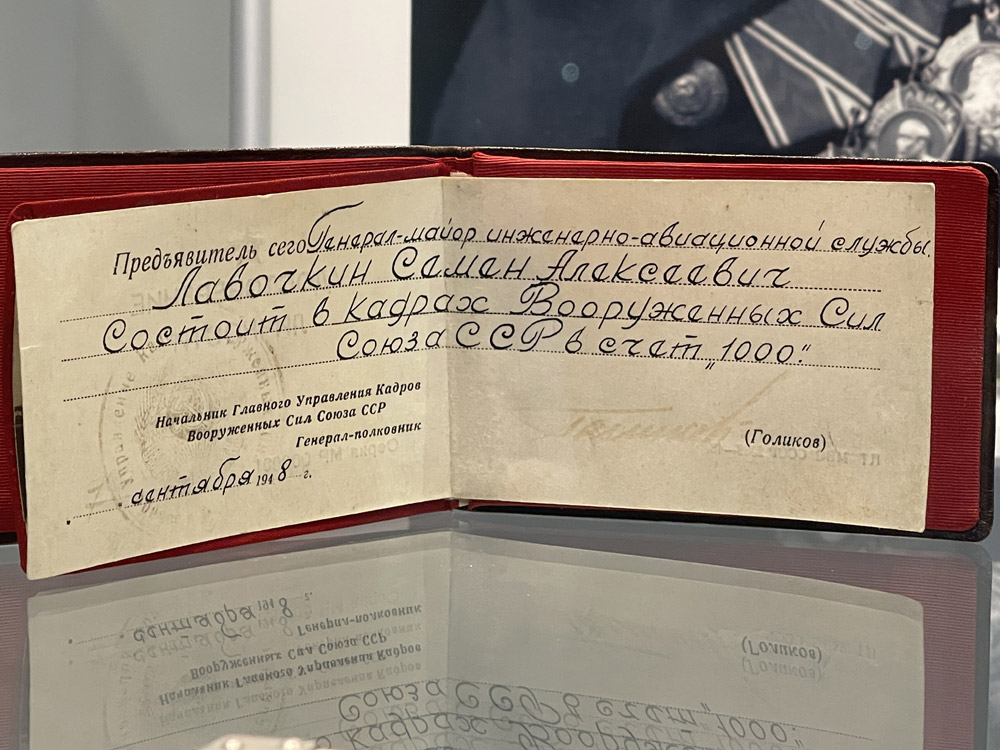 Предъявитель сего Генерал-майор инженерно-авиационной службы
Лавочкин Семен Алексеевич
Состоит в кадрах Вооруженных Сил
Союза ССР в счет „1000."
Начальник Главного Управления Кадров
Вооруженных Сил Союза ССР
Генерал-полковник
(Голиков)
сентября 1948 г.